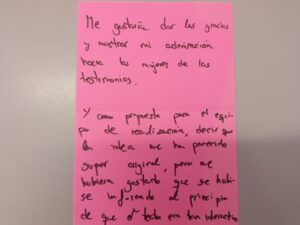 Me gustaría dar las gracias
y mostrar mi admiración
hacia las mujeres de los
testimonios.
Y como propuesta para el equi-
po de realización, decir que
la idea me ha parecido
super original, pero me
hubiera gustado que se hubie-
se informado al principio
de que el texto era tan interactivo